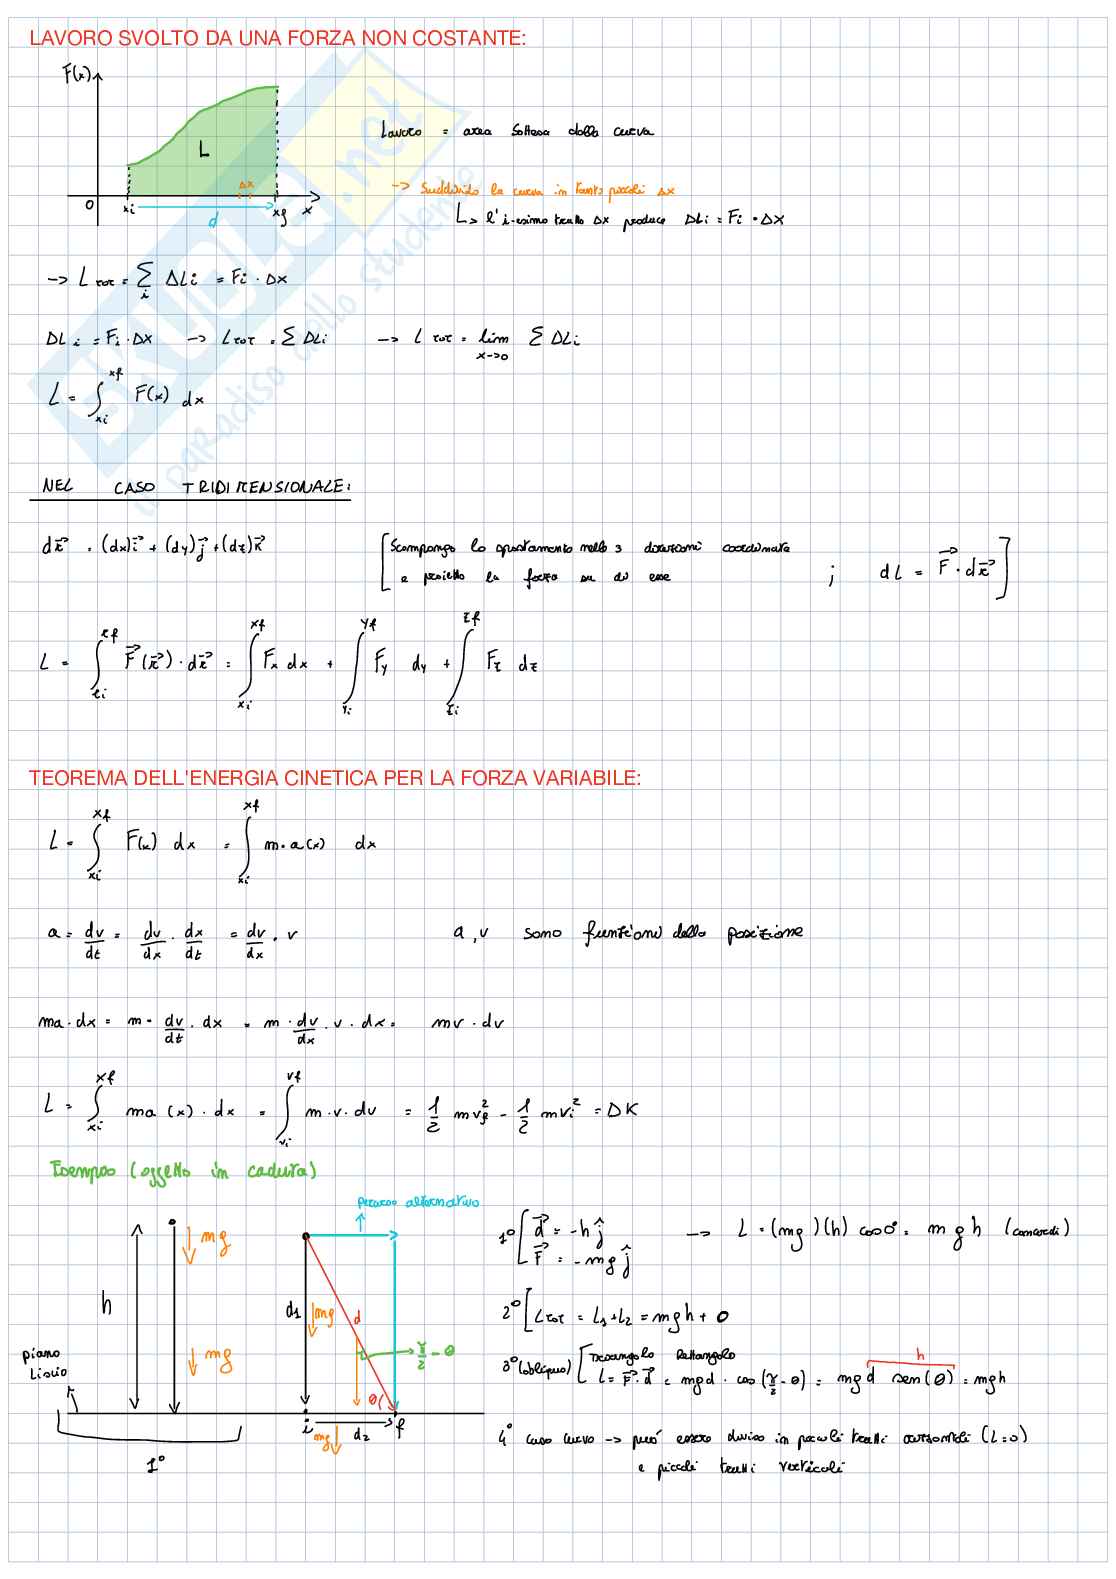 LAVORO SVOLTO DA UNA FORZA NON COSTANTE:
F(x)
L
Δx
0 xi d xf x
Lavoro = area sottesa dalla curva
-> Suddivido la curva in tanti piccoli Δx
L> l'i-esimo tratto Δx produce ΔLi = Fi · Δx
-> L TOT = Σ i ΔLi = Fi · Δx
ΔLi = Fi · Δx -> L TOT = Σ ΔLi -> L TOT = lim x->0 Σ ΔLi
L = ∫ xi xf F(x) dx
SKUOLA.net
il paradiso dello studente
NEL CASO TRIDIMENSIONALE:
dr⃗ = (dx)i⃗ + (dy)j⃗ + (dz)k⃗
[Scompongo lo spostamento nelle 3 direzioni coordinate
e proietto la forza su di esse ; dL = F⃗ · dr⃗]
L = ∫ ri rf F⃗(r⃗) · dr⃗ = ∫ xi xf Fx dx + ∫ yi yf Fy dy + ∫ zi zf Fz dz
TEOREMA DELL'ENERGIA CINETICA PER LA FORZA VARIABILE:
L = ∫ xi xf F(x) dx = ∫ xi xf m·a(x) dx
a = dv/dt = dv/dx · dx/dt = dv/dx · v a, v sono funzioni della posizione
ma · dx = m · dv/dt · dx = m · dv/dx · v · dx = mv · dv
L = ∫ xi xf ma(x) · dx = ∫ vi vf m · v · dv = 1/2 mvf² - 1/2 mvi² = ΔK
Esempio (oggetto in caduta)
percorso alternativo
mg
h
mg
piano
liscio
1°
d1 mg d
π/2 - θ
θ
i d2 f
mg
1° [d⃗ = -h ĵ -> L = (mg)(h) cos0° = mgh (concordi)
F⃗ = -mg ĵ
2° [L TOT = L1 + L2 = mgh + 0
3° (obliquo) [Triangolo Rettangolo
L = F⃗ · d⃗ = mgd · cos(π/2 - θ) = mg d sen(θ) = mgh
h
4° caso curvo -> può essere diviso in piccoli tratti orizzontali (L=0)
e piccoli tratti verticali